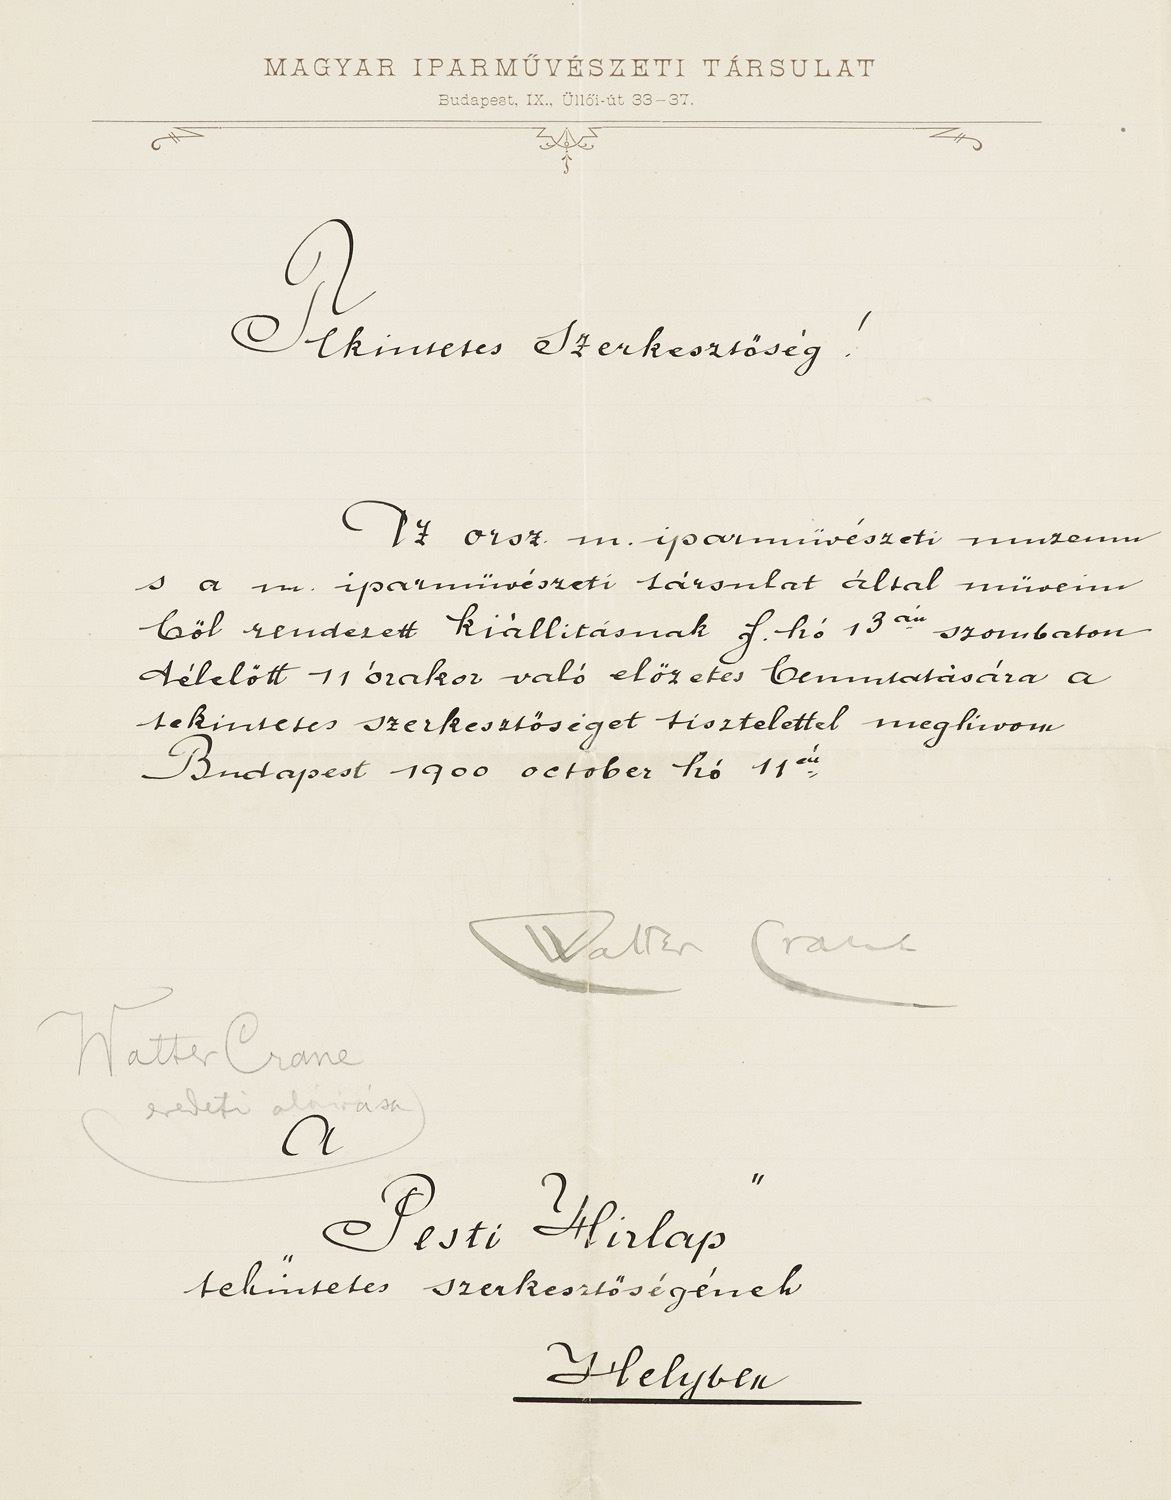 MAGYAR IPARMŰVÉSZETI TÁRSULAT
Budapest, IX., Üllői-út 33–37.
Tekintetes Szerkesztőség!
Az orsz. m. iparmüvészeti muzeum
s a m. iparmüvészeti társulat által müveim
ből rendezett kiállitásnak f. hó 13án szombaton
délelőtt 11 órakor való előzetes bemutatására a
tekintetes szerkesztőséget tisztelettel meghivom
Budapest 1900 october hó 11én
Walter Crane
Walter Crane
eredeti aláirása
A
„Pesti Hirlap"
tekintetes szerkesztőségének
Helyben